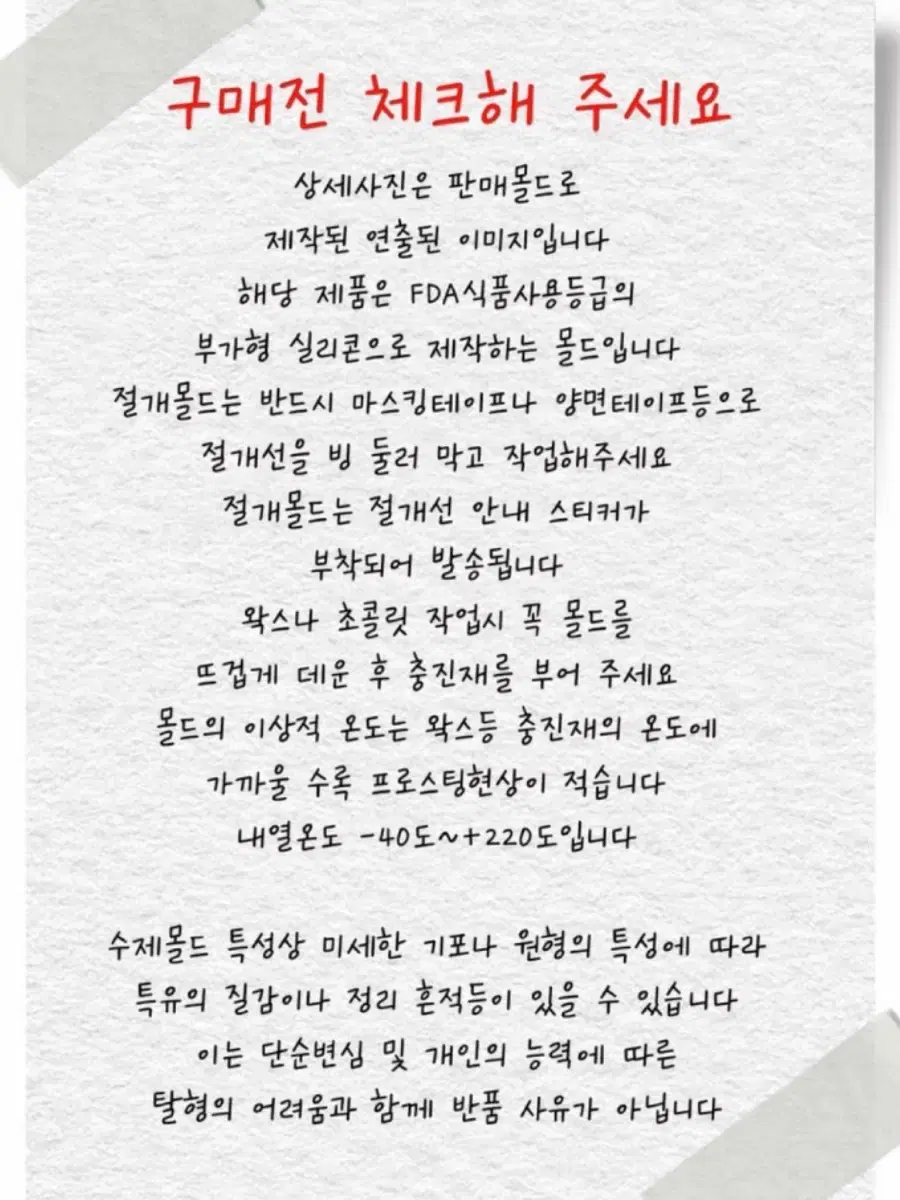 구매전 체크해 주세요
상세사진은 판매몰드로
제작된 연출된 이미지입니다
해당 제품은 FDA식품사용등급의
부가형 실리콘으로 제작하는 몰드입니다
절개몰드는 반드시 마스킹테이프나 양면테이프등으로
절개선을 빙 둘러 막고 작업해주세요
절개몰드는 절개선 안내 스티커가
부착되어 발송됩니다
왁스나 초콜릿 작업시 꼭 몰드를
뜨겁게 데운 후 충진재를 부어 주세요
몰드의 이상적 온도는 왁스등 충진재의 온도에
가까울 수록 프로스팅현상이 적습니다
내열온도 -40도~+220도입니다
수제몰드 특성상 미세한 기포나 원형의 특성에 따라
특유의 질감이나 정리 흔적등이 있을 수 있습니다
이는 단순변심 및 개인의 능력에 따른
탈형의 어려움과 함께 반품 사유가 아닙니다